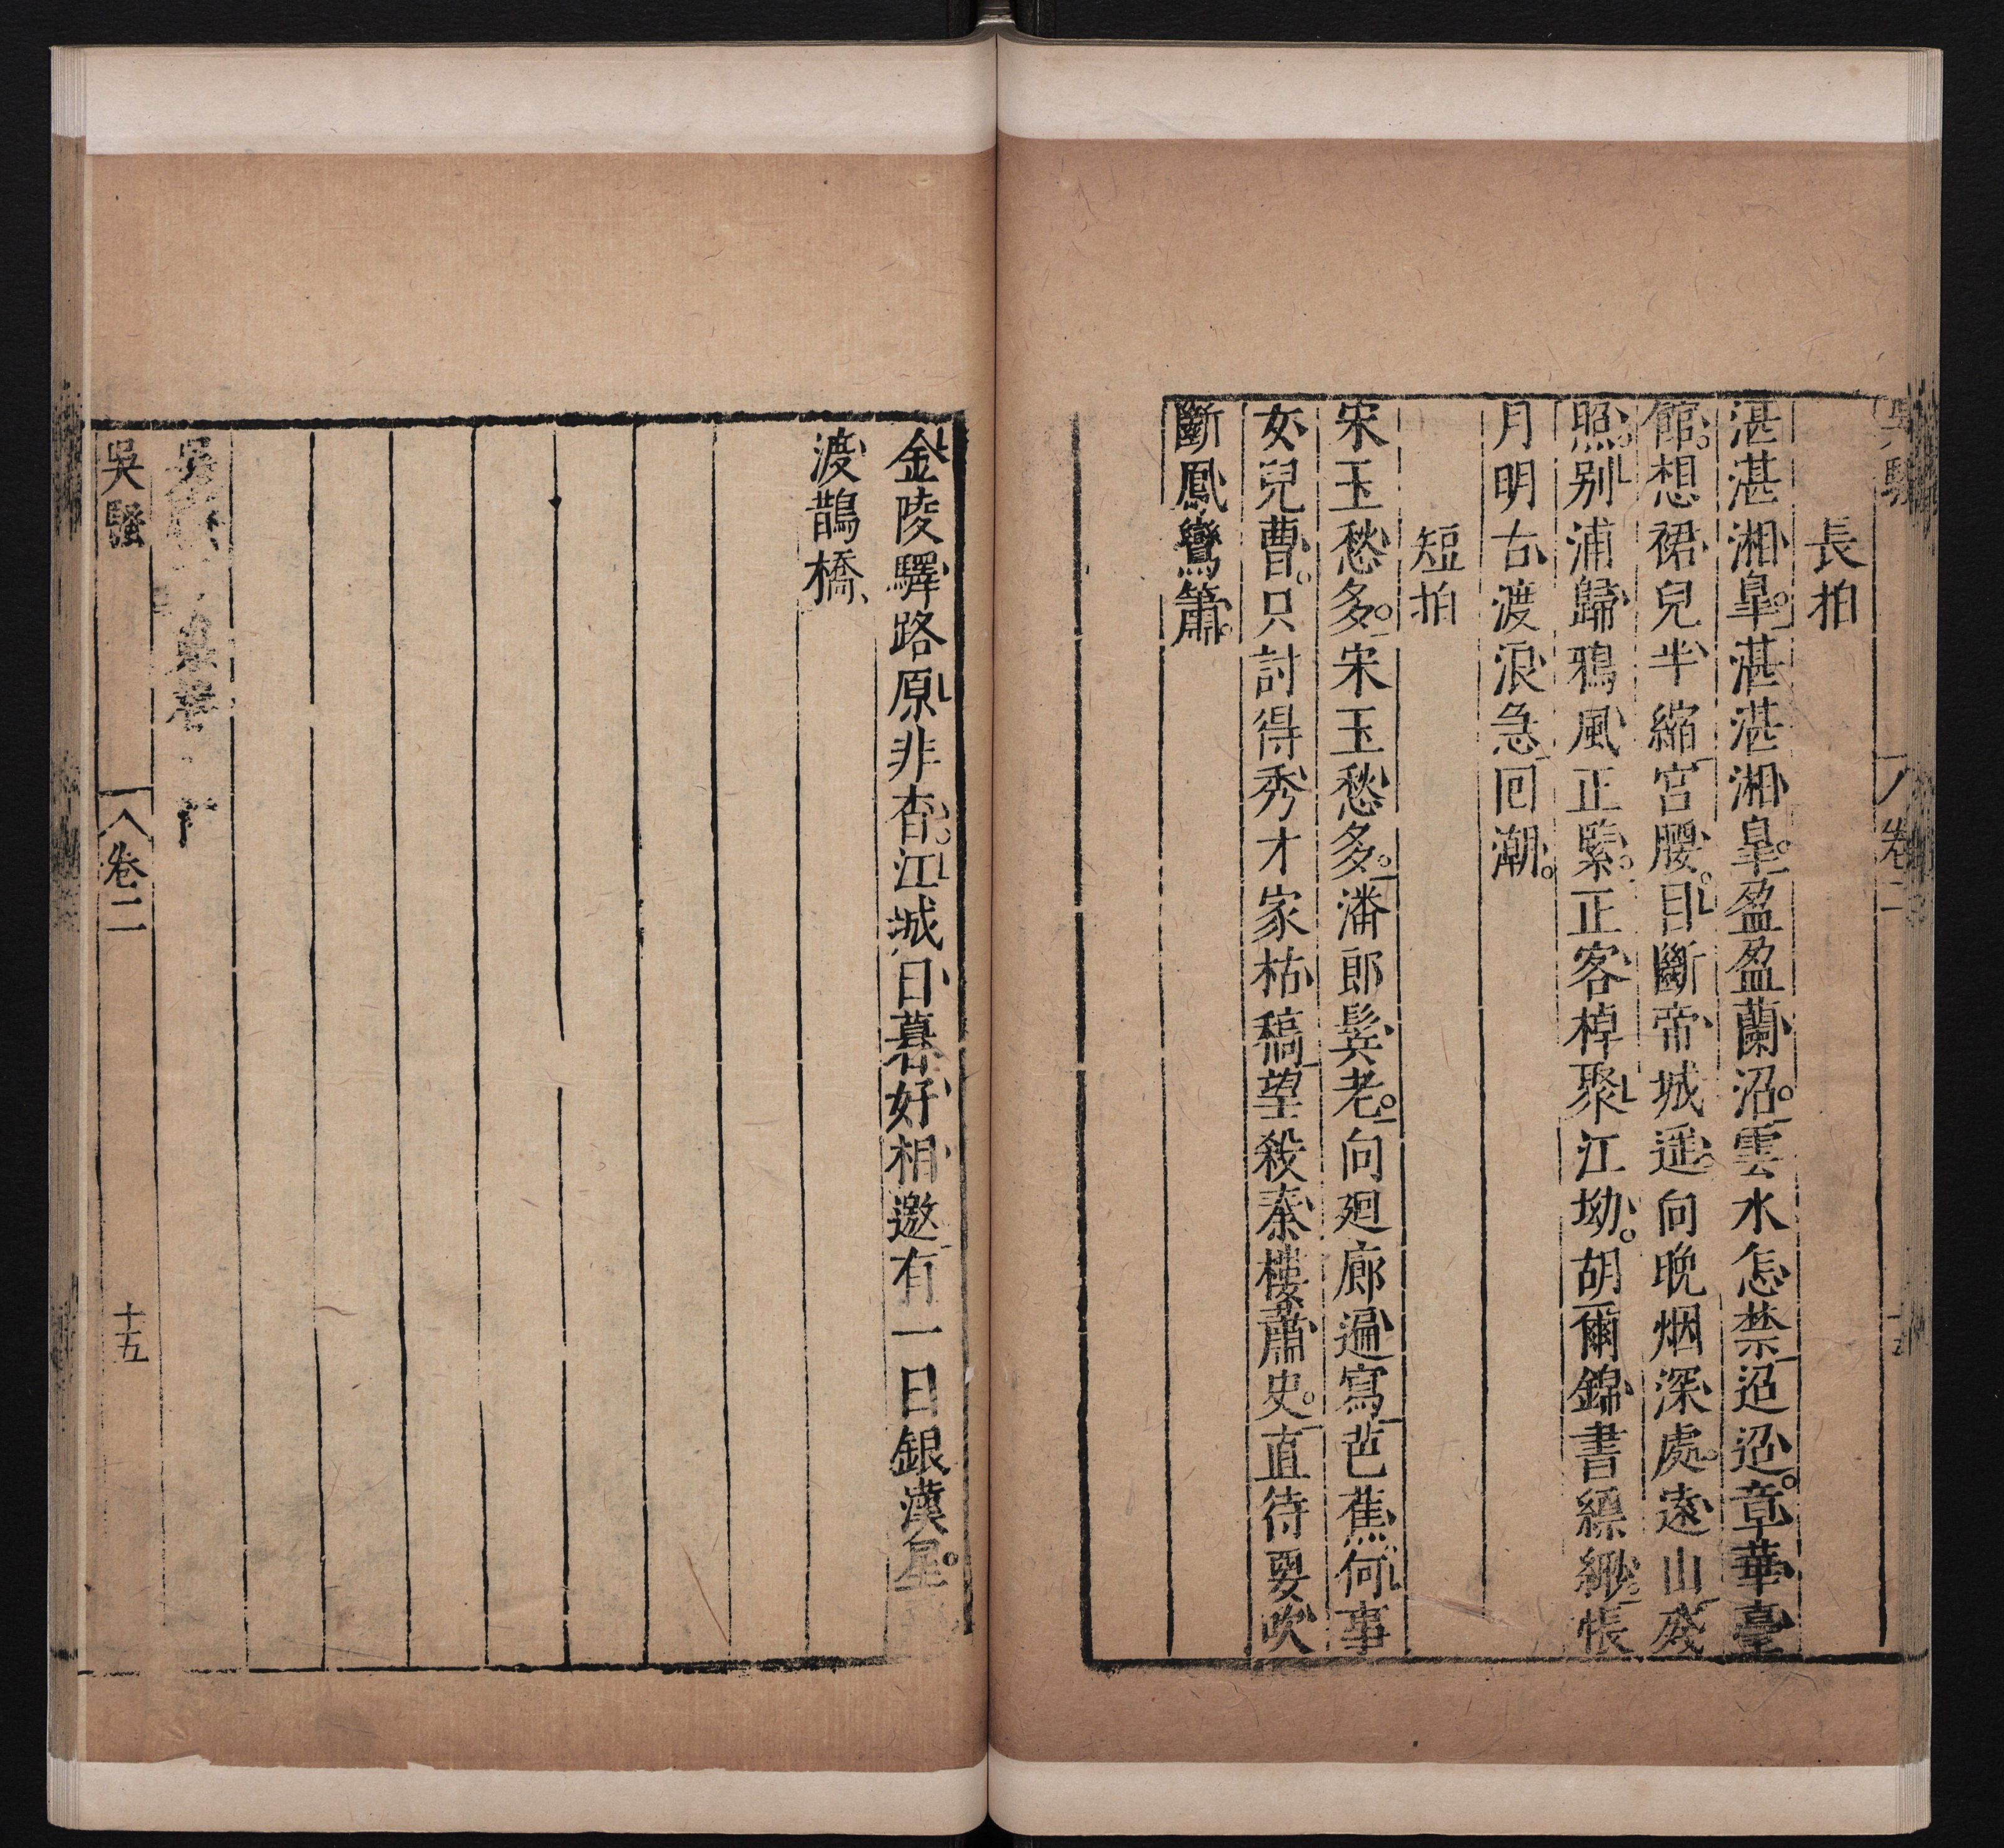 長拍
湛湛湘臯湛湛湘臯盈盈蘭沼雲水怎禁迢迢章華臺
館想裙兒半縮宮腰目斷帝城遥向晚烟深處遠山殘
照別浦歸鴉風正緊正客棹聚江坳胡爾錦書縹緲悵
月明古渡浪急回潮
短拍
宋玉愁多宋玉愁多潘郎鬂老向廻廊遍寫芭蕉何事
女兒曹只討得秀才家枯稿望殺秦樓蕭史直待要吹
斷鳳鸞簫
金陵驛路原非杳江城日暮好相邀有一日銀漢星
渡鵲橋
吳騷 卷二 十五